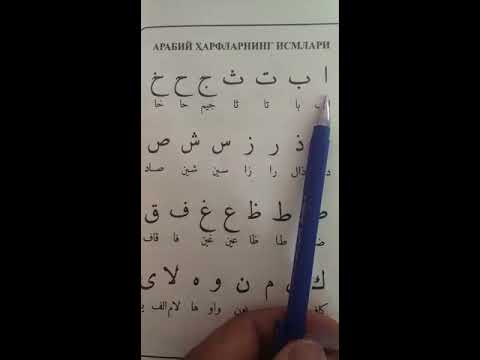 АРАБИЙ ҲАРФЛАРНИНГ ИСМЛАРИ
ا ب ت ث ج ح خ
با تا ثا جيم حا خا
ذ ر ز س ش ص
ذال را زا سين شين صاد
ط ظ ع غ ف ق
طا ظا عين غين فا قاف
ك م ن و ه لا ى
واو ها لام الف